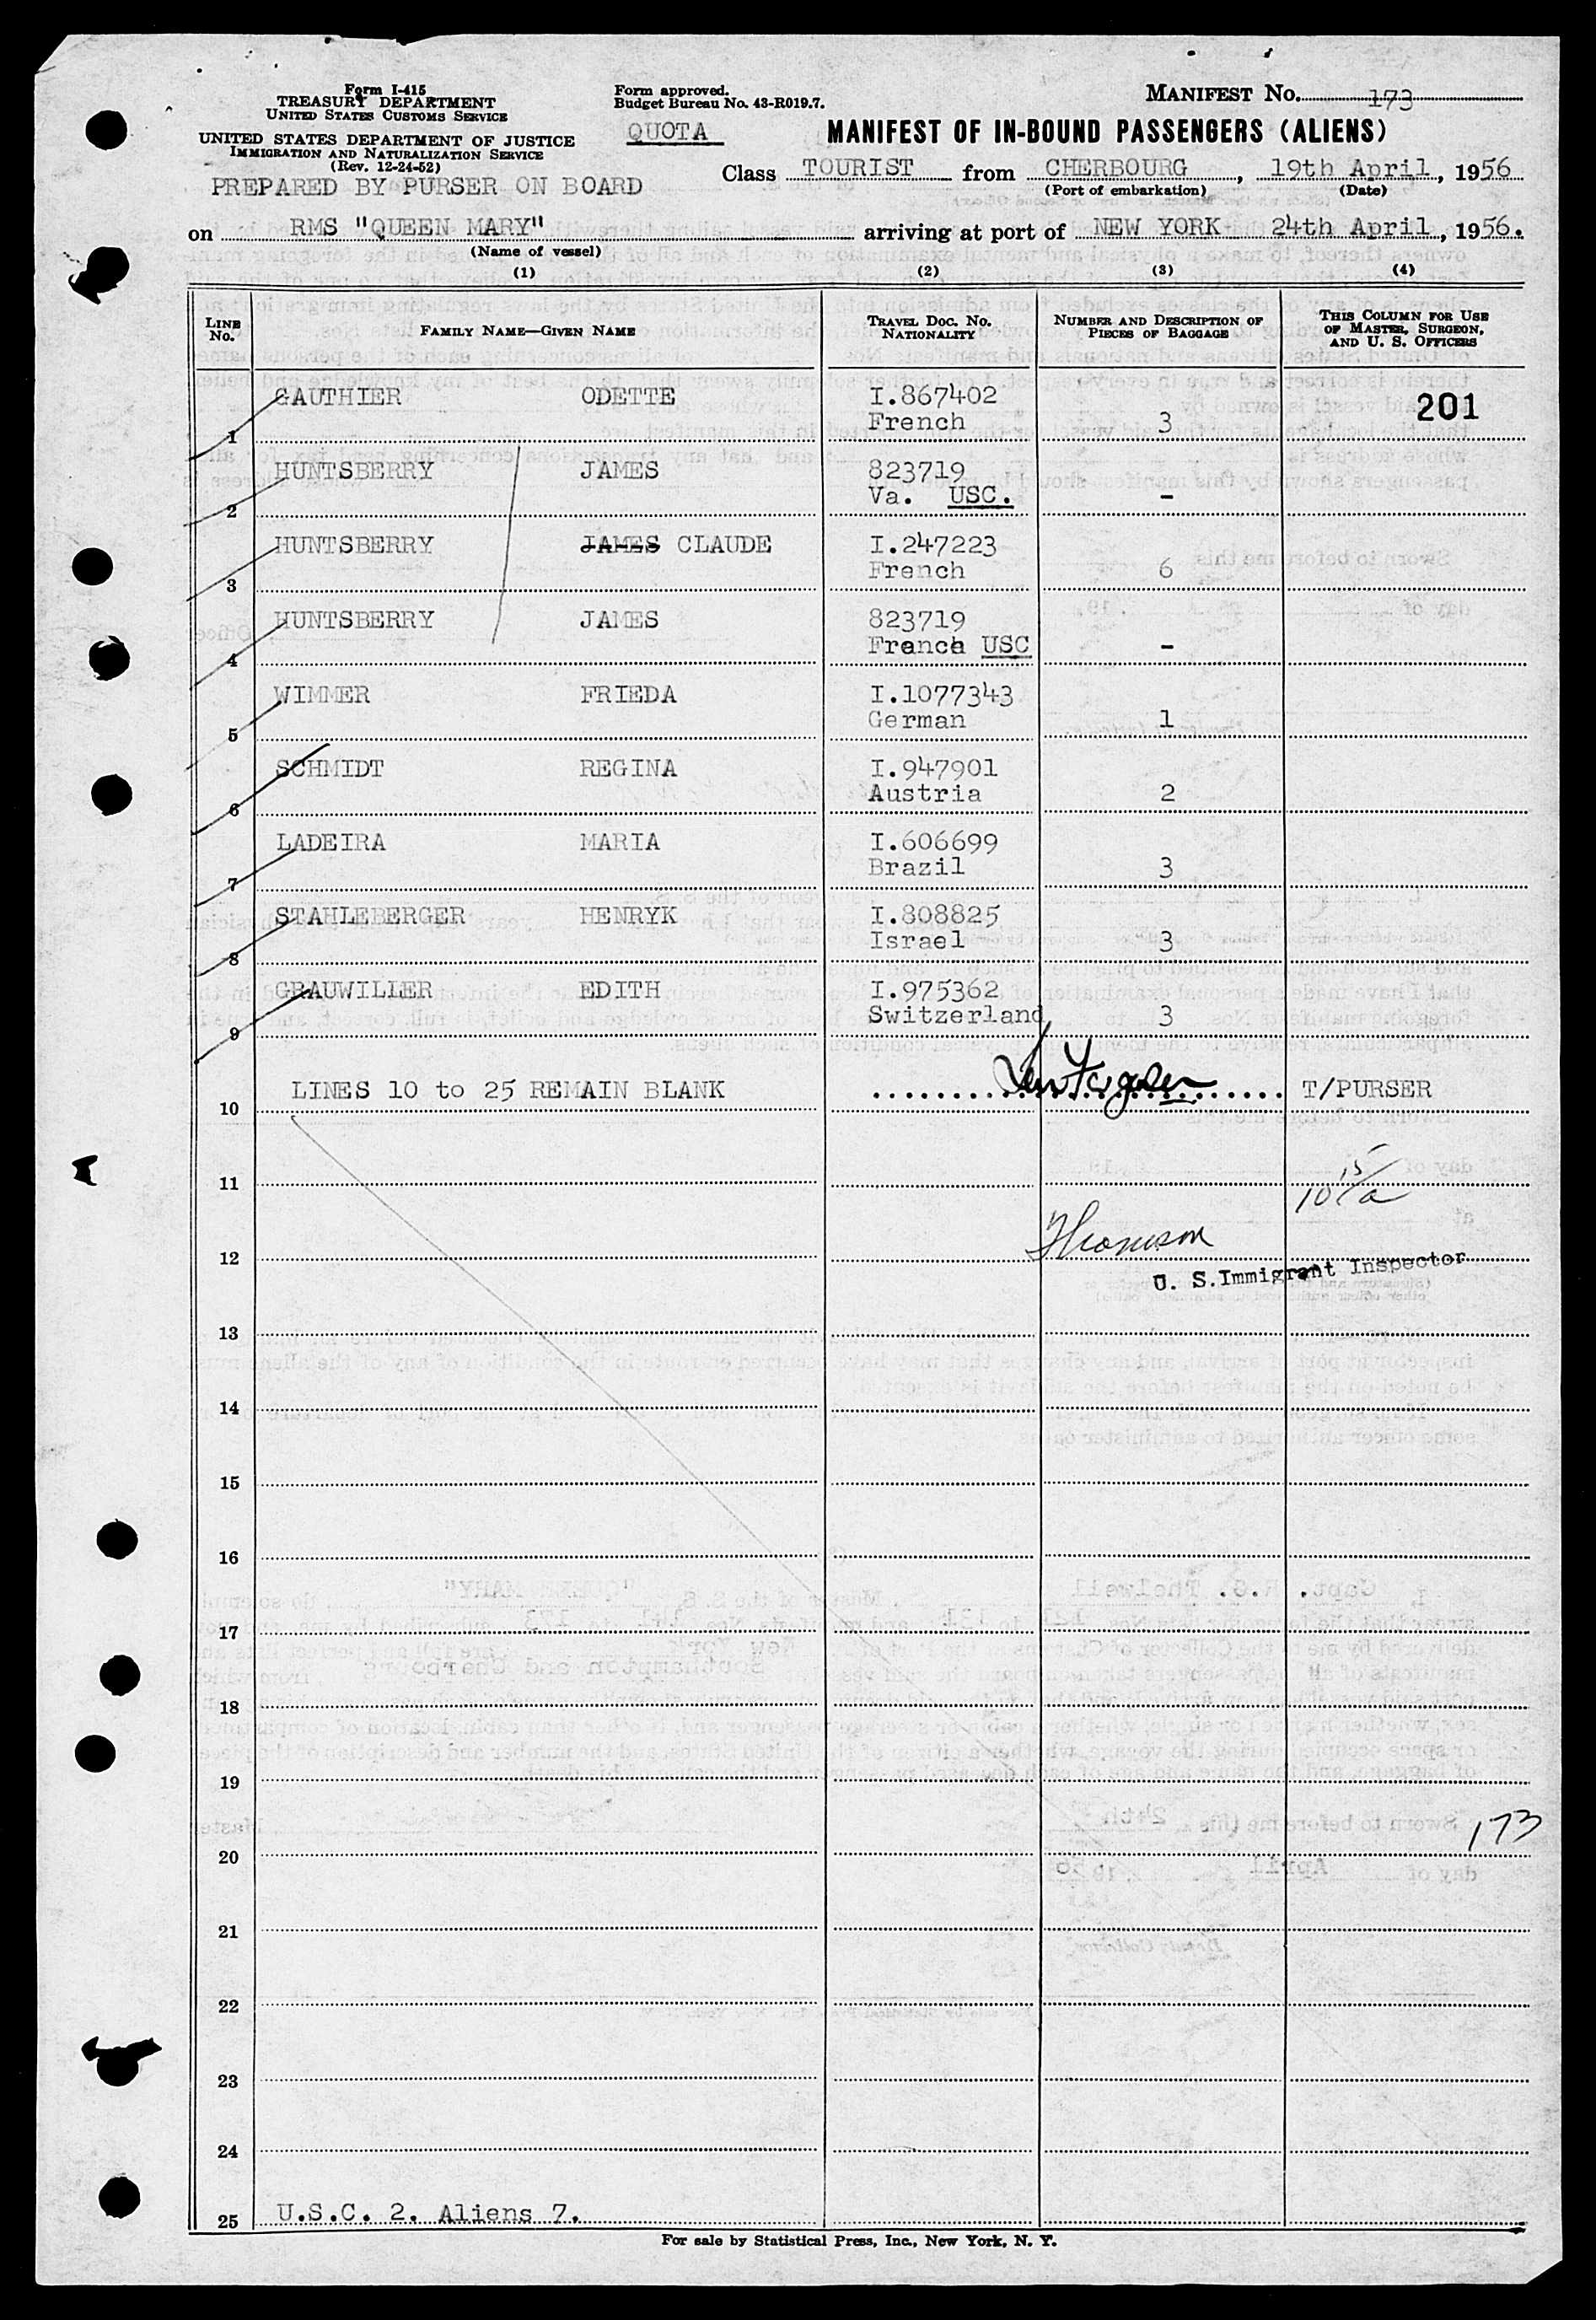 Form I-415
TREASURY DEPARTMENT
UNITED STATES CUSTOMS SERVICE
UNITED STATES DEPARTMENT OF JUSTICE
IMMIGRATION AND NATURALIZATION SERVICE
(Rev. 12-24-52)
PREPARED BY PURSER ON BOARD
Form approved.
Budget Bureau No. 43-R019.7.
QUOTA
MANIFEST NO. 173
MANIFEST OF IN-BOUND PASSENGERS (ALIENS)
Class TOURIST from CHERBOURG, 19th April, 1956
(Port of embarkation) (Date)
on RMS "QUEEN MARY" arriving at port of NEW YORK 24th April, 1956.
(Name of vessel)
(1) (2) (3) (4)
LINE NO. FAMILY NAME—GIVEN NAME TRAVEL DOC. NO. NATIONALITY NUMBER AND DESCRIPTION OF PIECES OF BAGGAGE THIS COLUMN FOR USE OF MASTER, SURGEON, AND U. S. OFFICERS
GAUTHIER ODETTE I.867402 201
1 French 3
HUNTSBERRY JAMES 823719
2 Va. USC. -
HUNTSBERRY JAMES CLAUDE I.247223
3 French 6
HUNTSBERRY JAMES 823719
4 France USC -
WIMMER FRIEDA I.1077343
5 German 1
SCHMIDT REGINA I.947901
6 Austria 2
LADEIRA MARIA I.606699
7 Brazil 3
STAHLEBERGER HENRYK I.808825
8 Israel 3
GRAUWILLER EDITH I.975362
9 Switzerland 3
LINES 10 to 25 REMAIN BLANK T/PURSER
10
11 10 15/a
12 Thomson
U. S. Immigrant Inspector
13
14
15
16
17
18
19
173
20
21
22
23
24
25 U.S.C. 2. Aliens 7.
For sale by Statistical Press, Inc., New York, N. Y.